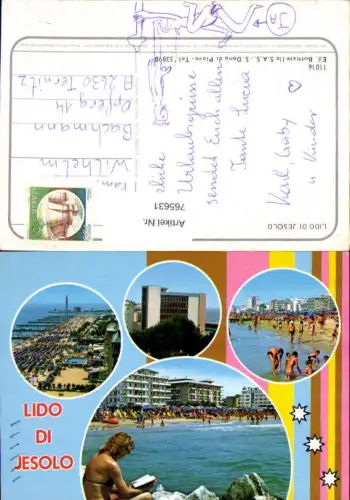 LIDO DI JESOLO
Artikel Nr.
765631
Liebe
Urlaubsgrüsse
sendet Euch allen
Tante Lucia
Karl, Gaby
u Kinder
Fam.
Wilhelm
Bachmann
14
A 2630 Ternitz
11016
Ed. Bortiste
S.A.S. - S. Donà di Piave - Tel.
LIDO
DI
JESOLO